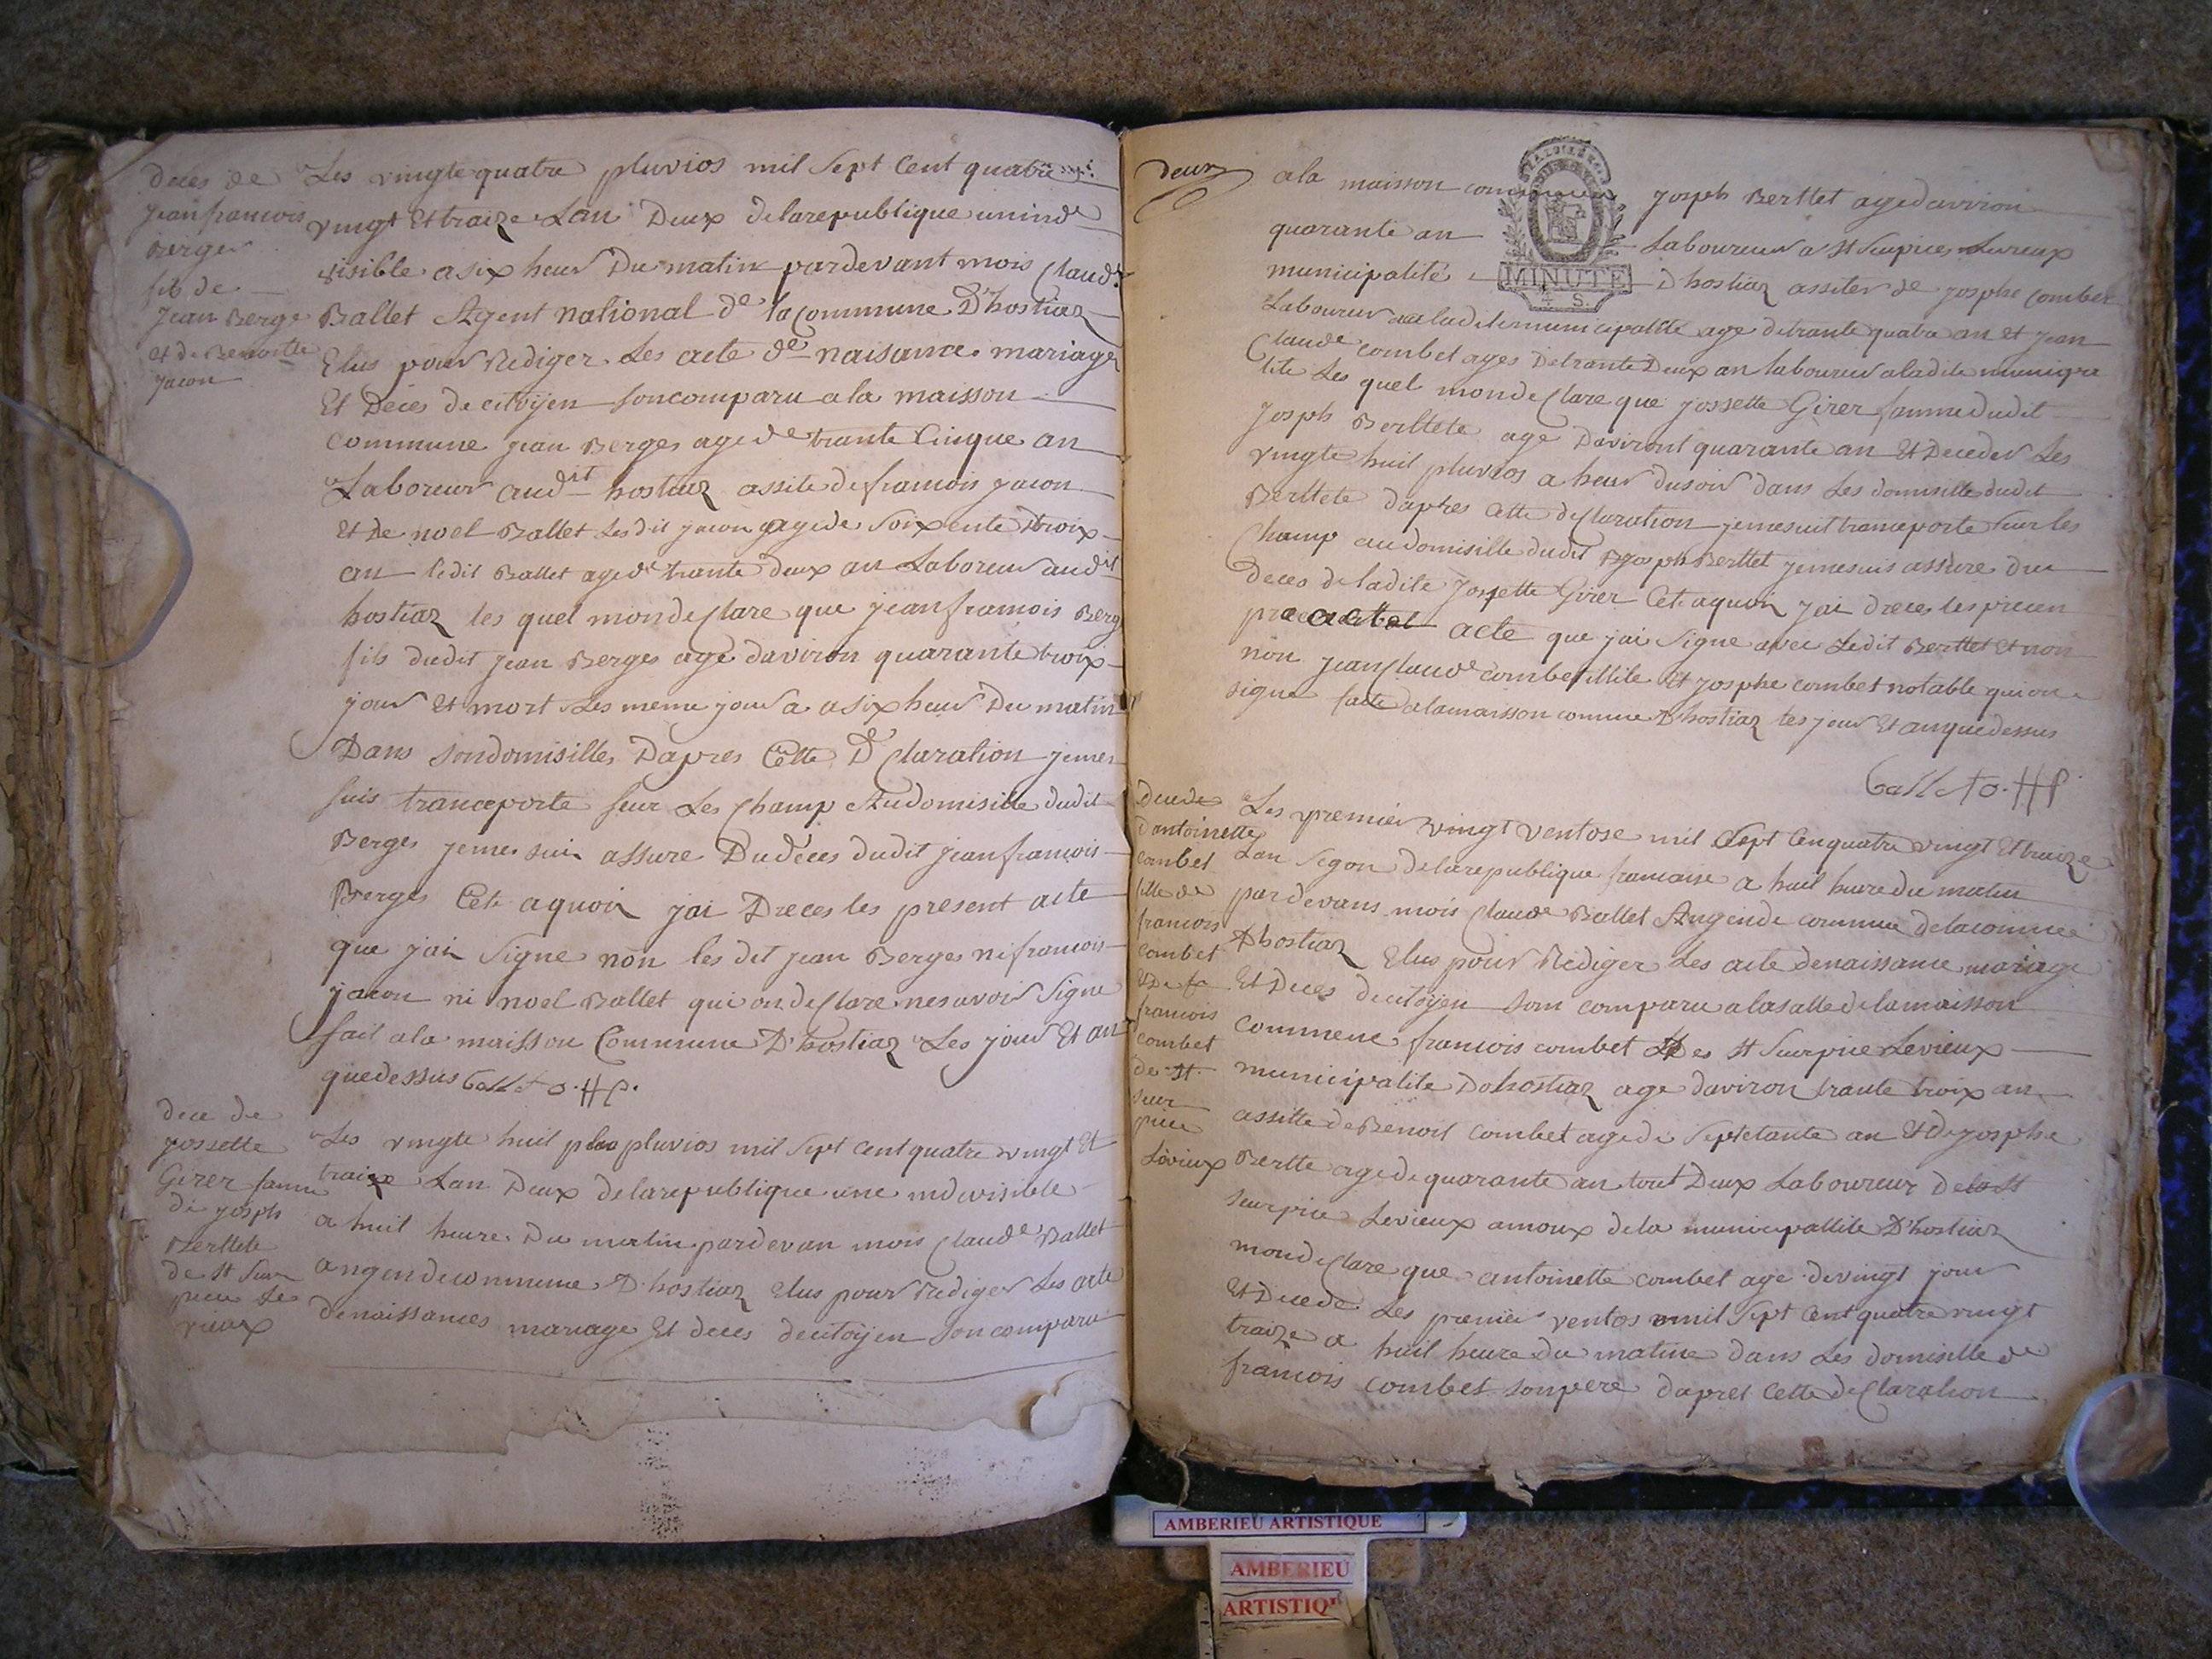 deces de
jean francois
Berger
fils de
jean Berge
et de Benoitte
jacon
Les vingte quatre pluvios mil sept Cent quatre
vingt Et traize Lan Deux delarepublique uninde
visible a six heur Du matin pardevant mois Claude
Ballet Agent national de la commune D'hostiaz
Elus pour Rediger Les acte de naisance mariage
Et Deces de citoÿen son comparu a la maisson
Commune jean Berges age de trante Cinque an
Laboreur audit hostiaz assite de francois jacon
Et De noel Ballet Les dit jacon agede soixente troix
an ledit Ballet age de trante deux an Laboreur audit
hostiaz les quel mondeClare que jean francois Berg
fils dudit jean Berges age daviron quarante troix
jour Et mort Les meme jour a a six heur Du matin
Dans sondomisilles Dapres Cette DeClaration jemes
suis tranceporte seur Les Champ Audomisille dudit
Berges jemes suis assure Du deces dudit jeanfrancois
Berges Cete aquoix jai Dreces les present acte
que jai Signe non les dit jean Berges ni francois
jacon ni noel Ballet qui on deClare nesavoir Signe
fait ala maisson Commune D'hostiaz Les jour Et an
quedessus Ballet o.
dece de
jossette
Girer famme
de josph
Berttete
de St Sur
picu Les
vieux
Les vingte huit pluvios mil Sept Cent quatre vingt Et
traize Lan Deux delarepublique une indivisible
a huit heure Du matin pardevan mois Claude Ballet
angendecommune D'hostiaz Elus pour Rediger Les acte
denaissances mariage Et deces decitoÿen Son comparu
deux
ala maison commune josph Berttet agedaviron
quarante an Laboureur a St Surpice Levieux
municipalité D'hostiaz assiter de josphe Combet
Laboureur a aladitemunicipalité age detrante quatre an et jean
Claude combet ages Detrante Deux an laboureur aladite municipa
lite Les quel mondeClare que jossette Girer famme dudit
josph Berttete age Daviront quarante an Et Deceder Les
vingte huit pluvios a heur dusoir Dans Les domisille dudit
Berttete Dapres cette deClaration jemesuit tranceporte sur les
Champ audomisille dudit josph Berttet jemesuis assure du
deces deladite jossette Girer Cete aquoix jai dreces les precen
acte que jai Signe avec Ledit Berttet et non
non jean Claude combet et josphe combet notable quion
signe faite alamaisson commune D'hostiaz les jour Et anquedessus
Ballet o.
Decede
d'antoinette
Combet
fille de
francois
Combet
Et De
francois
combet
de St
sur
pice
Levieux
Les premier vingt ventose mil Sept Cenquatre vingt Et traize
Lan Segon delarepublique francaise a huit heure du matin
par devans mois Claude Ballet Angende commune delacommune
D'hostiaz Elus pour Rediger Les acte denaissance mariage
Et Deces decitoÿen Som comparu alasalle delamaisson
commune francois combet Des St Surpice Levieux
municipalite Dohostiaz age daviron trante troix an
assitte de Benoit Combet agede Septetante an Et de josphe
Bertte agede quarante an tout Deux Laboureur de St
Surpice Levieux amoux dela municipallite D'hostiaz
mondeClare que antoinette combet age devingt jour
Et Decede Les premier ventos mil Sept Cent quatre vingt
traize a huit heure du matine dans Les domisille de
francois combet sonpere dapret Cette deClaration
MINUTE
4 S.
AMBERIEU ARTISTIQUE
AMBERIEU
ARTISTIQ